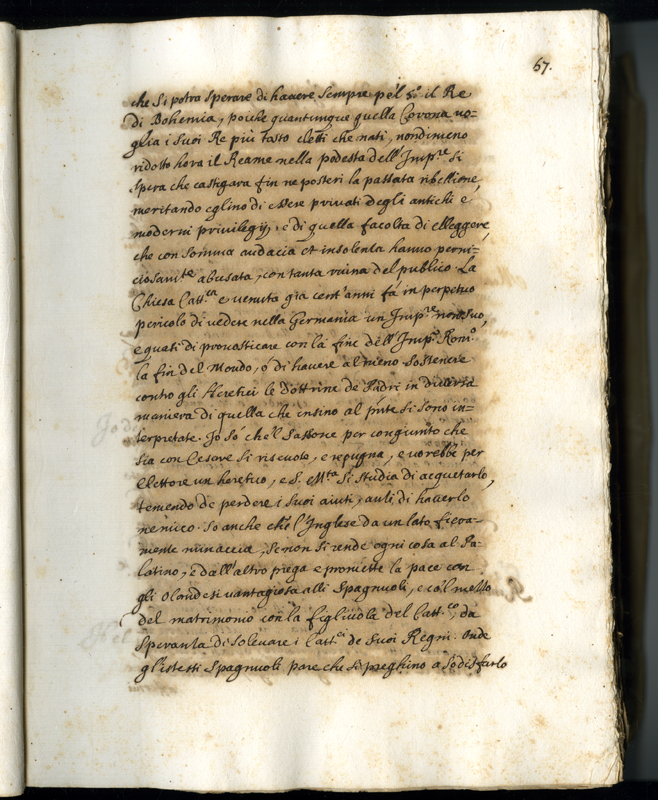 67.
che si potra sperare di havere sempre pe'l 5.º il Re
di Bohemia, poiche quantunque quella Corona vo=
glia i suoi Re più tosto eletti che nati, nondimeno
ridotto hora il Reame nella podesta dell'Imp.re si
spera che castigara fin ne posteri la passata ribellione,
meritando eglino di essere privati degli antichi e
moderni privilegij, e di quella facolta di elleggere,
che con somma audacia et insolenza hanno perni=
ciosam.te abusata, con tanta ruina del publico. La
Chiesa Catt.ca e venuta gia cent'anni fà in perpetuo
pericolo di vedere nella Germania un Imp.re
e quasi di pronosticare con la fine dell'Imp.º Rom.º
la fin del Mondo, o di havere almeno sostenere
contro gli Heretici le dottrine de Padri in diversa
maniera di quella che insino al pñte si sono in=
terpretate. Io sò che'l Sassone per congiunto che
sia con Cesare si riscuote, e repugna, e vorebbe per
Elettore un heretico, e S. M.tà si studia di acquetarlo,
temendo de perdere i suoi aiuti, anzi di haverlo
nemico. So anche che l'Inglese da un lato fiera=
mente minaccia, se non si rende ogni cosa al Pa=
latino, e dall'altro piega e promette la pace con
gli Olandesi vantagiosa alli Spagnuoli, e co'l mezzo
del matrimonio con la figliuola del Catt.co, da
speranza di solevare i Catt.ci de suoi Regni. Onde
gl'istessi Spagnuoli pare che si pieghino a sodisfarlo